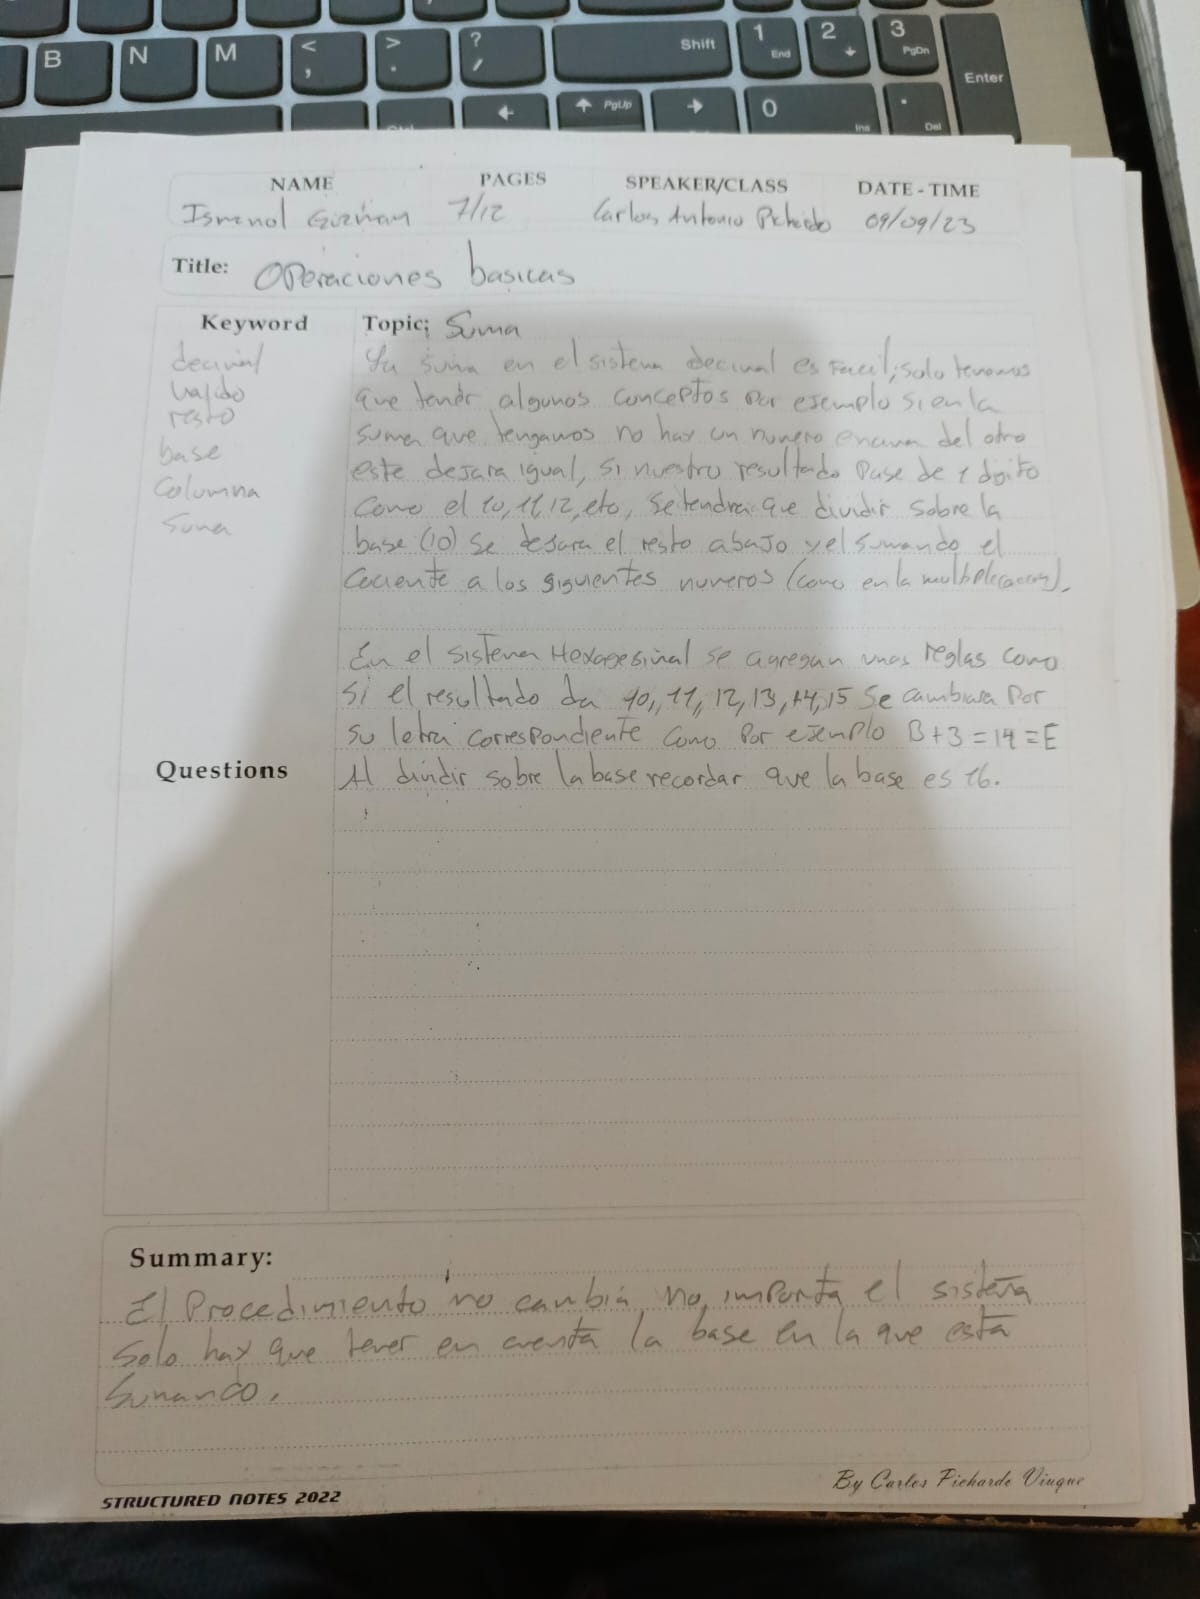 B N M < , > . ? / Shift 1 End 2 3 PgDn Enter
PgUp 0 Ins . Del
NAME PAGES SPEAKER/CLASS DATE - TIME
Ismael Guzman 7/12 Carlos Antonio Pichardo 09/09/23
Title: Operaciones basicas
Keyword
decimal
valido
resto
base
Columna
Suma
Topic: Suma
La suma en el sistema decimal es Facil; solo tenemos
que tener algunos conceptos por ejemplo si en la
suma que tengamos no hay un numero encima del otro
este dejara igual, si nuestro resultado pase de 1 digito
como el 10, 11, 12, etc, se tendra que dividir sobre la
base (10) se dejara el resto abajo y el sumando el
cociente a los siguientes numeros (como en la multiplicacion).
En el sistema Hexagesimal se agregan unas reglas como
si el resultado da 10, 11, 12, 13, 14, 15 se cambiara por
su letra correspondiente como por ejemplo B+3=14=E
Al dividir sobre la base recordar que la base es 16.
Questions
Summary:
El Procedimiento no cambia no importa el sistema
solo hay que tener en cuenta la base en la que esta
sumando.
STRUCTURED NOTES 2022
By Carlos Pichardo Viuque